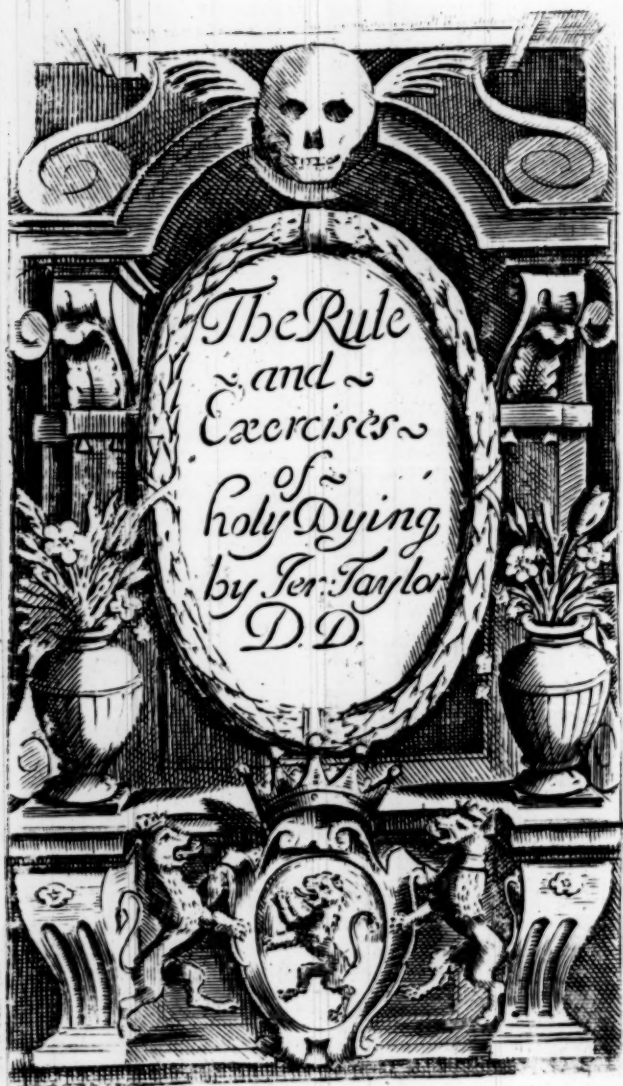 The Rule
~ and ~
Exercises ~
of ~
holy Dying
by Jer: Taylor
D. D.